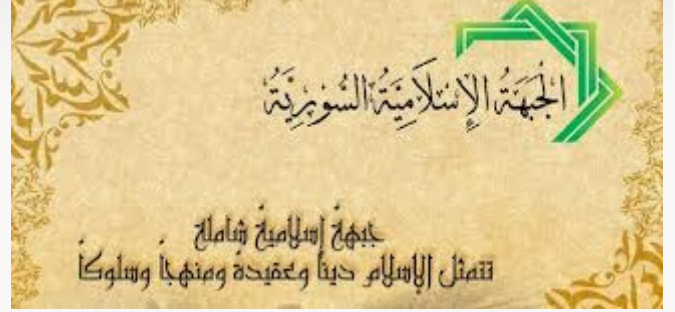 الجَبهَةُ الإِسْلَامِيَّةُ السُّورِيَّةُ
جبهةٌ إسلاميةٌ شاملة
تتمثل الإسلام ديناً وعقيدةً ومنهجاً وسلوكاً